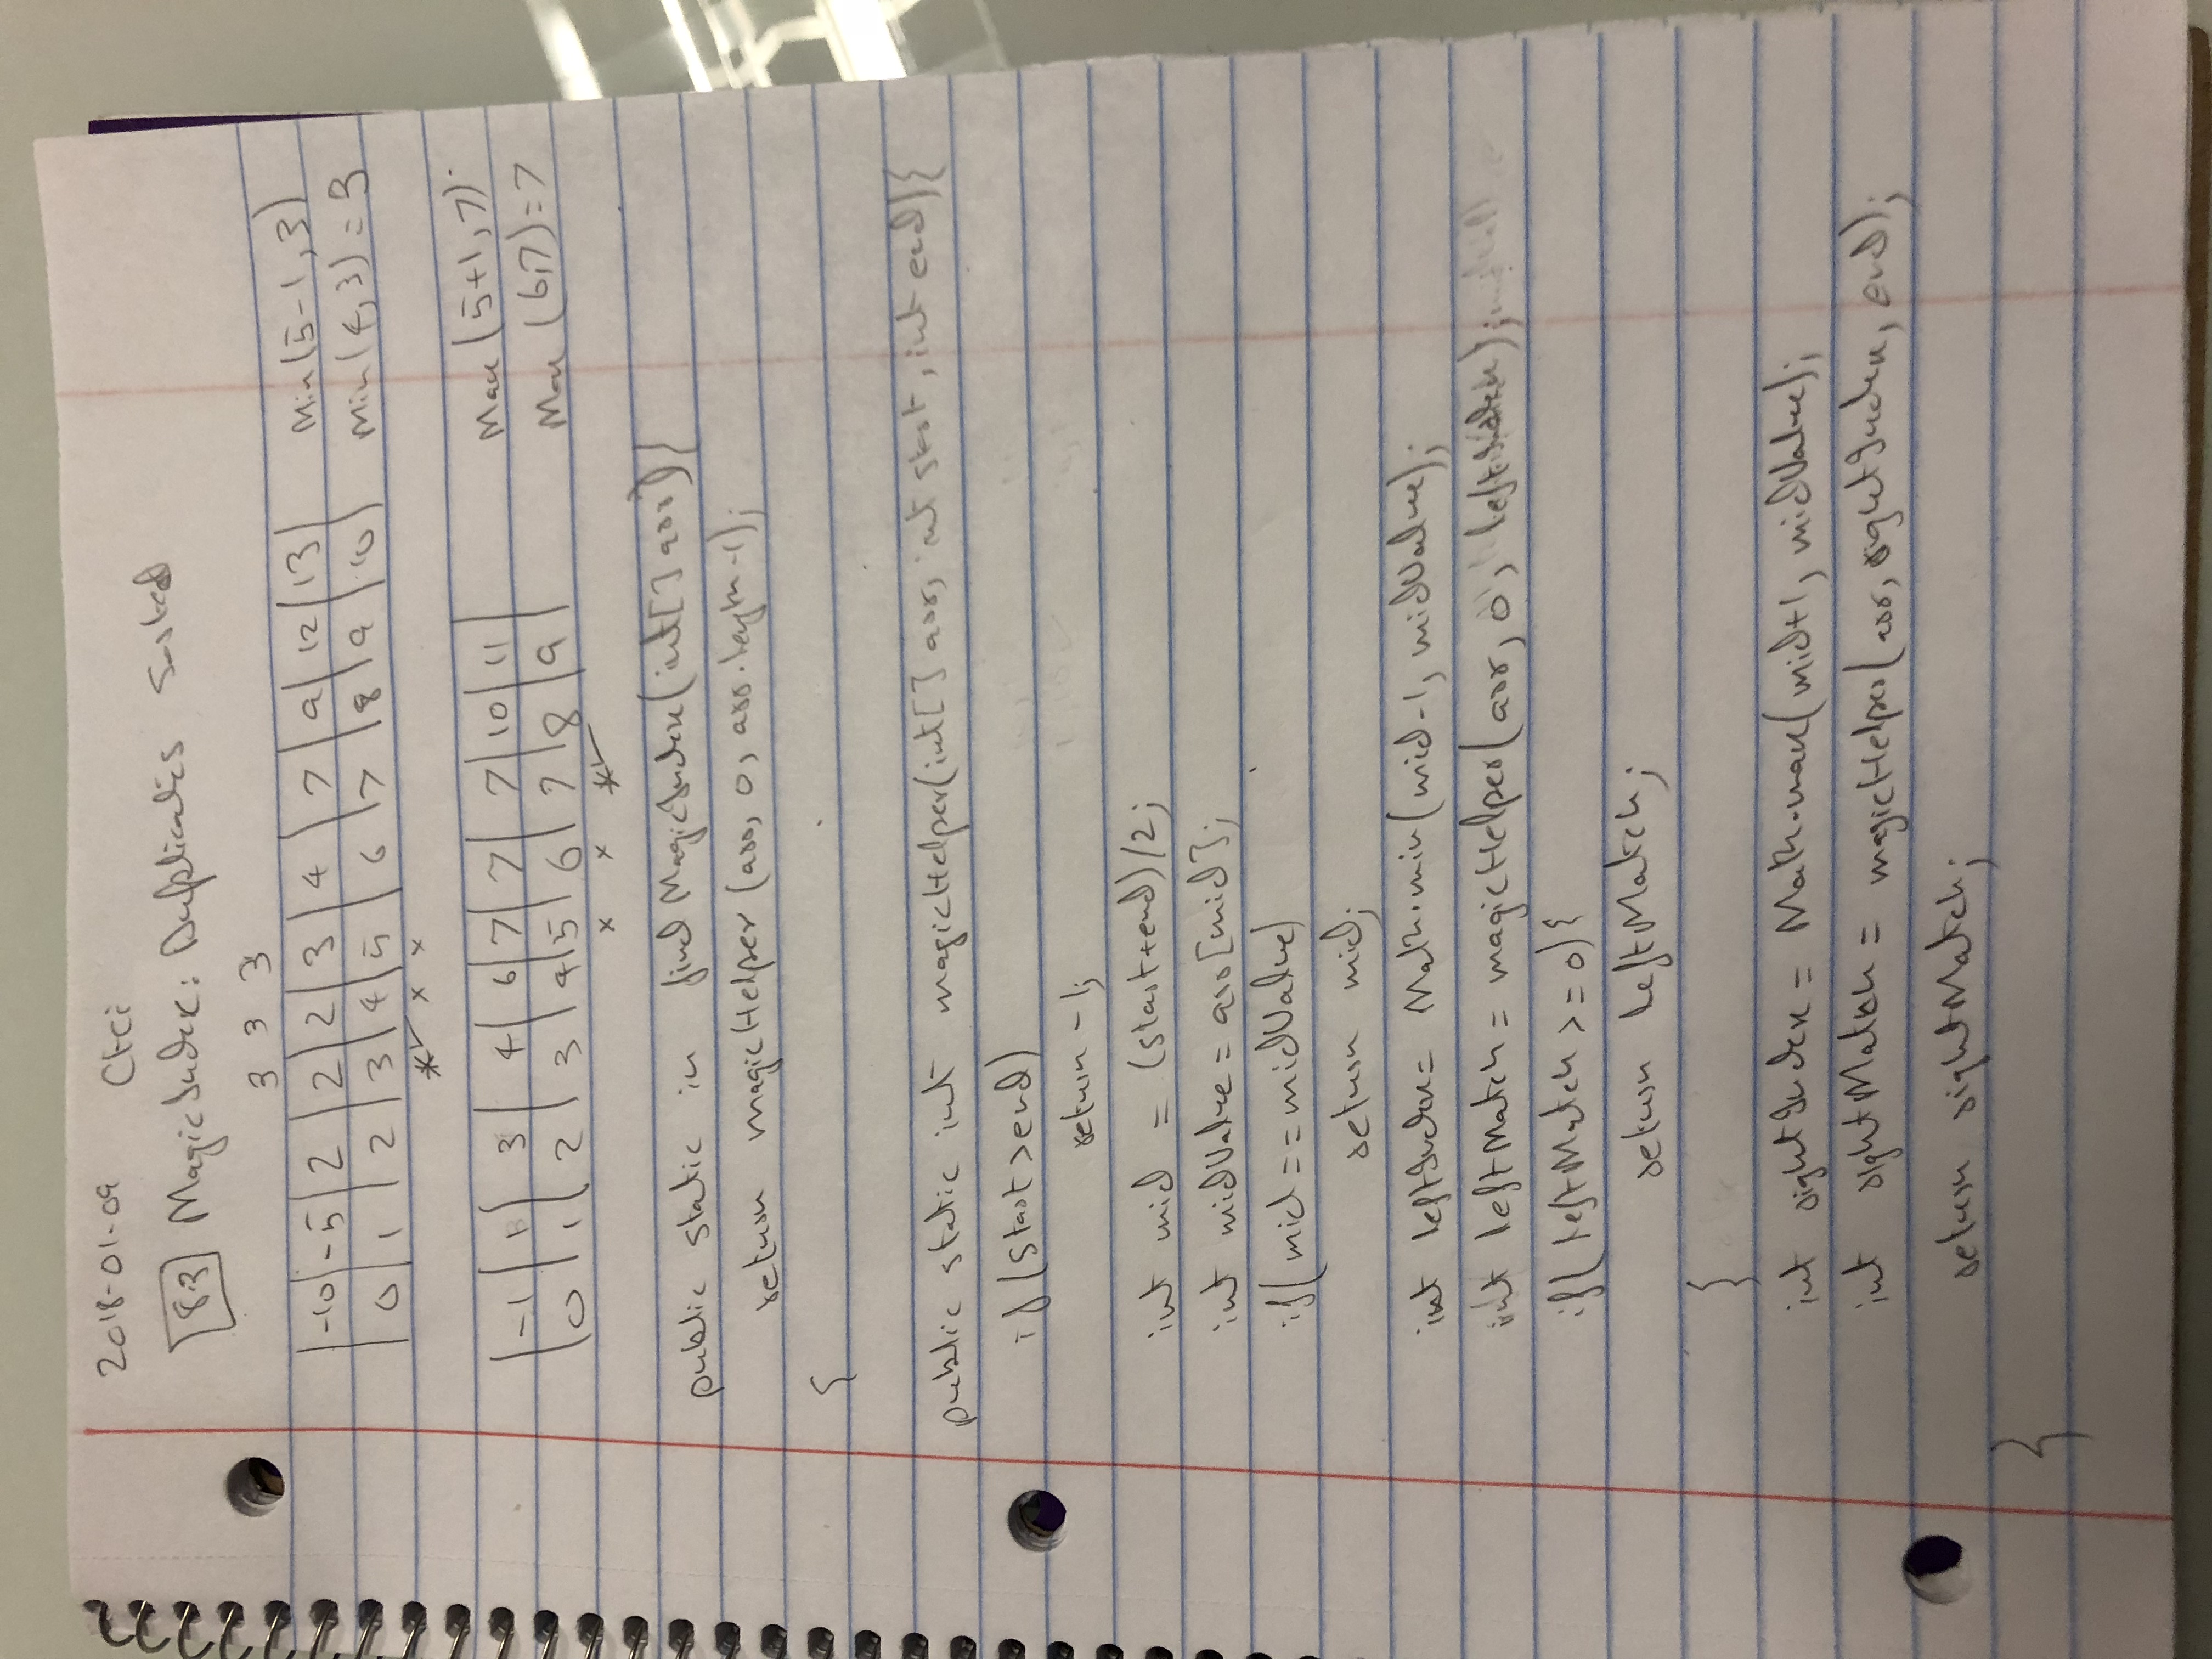 2018-01-09 CtCi
8.3 MagicIndex: Duplicates Sorted
3 3 3
-10 -5 2 2 2 3 4 7 9 12 13 Min(5-1, 3)
0 1 2 3 4 5 6 7 8 9 10 Min(4, 3) = 3
* ✓ x x
-1 1 3 4 6 7 7 7 10 11 Max (5+1, 7)
0 1 2 3 4 5 6 7 8 9 Max (6,7)=7
x x * ✓
public static in findMagicIndex(int[] arr){
return magicHelper (arr, 0, arr.length-1);
{
public static int magicHelper(int[] arr, int start, int end){
if (start>end)
return -1;
int mid = (start+end)/2;
int midValue = arr[mid];
if(mid==midValue)
return mid;
int leftIndex= Math.min(mid-1, midValue);
int leftMatch = magicHelper(arr, 0, leftIndex);
if( leftMatch >=0){
return leftMatch;
}
int rightIndex = Math.max(mid+1, midValue);
int rightMatch = magicHelper(arr, rightIndex, end);
return rightMatch;
}